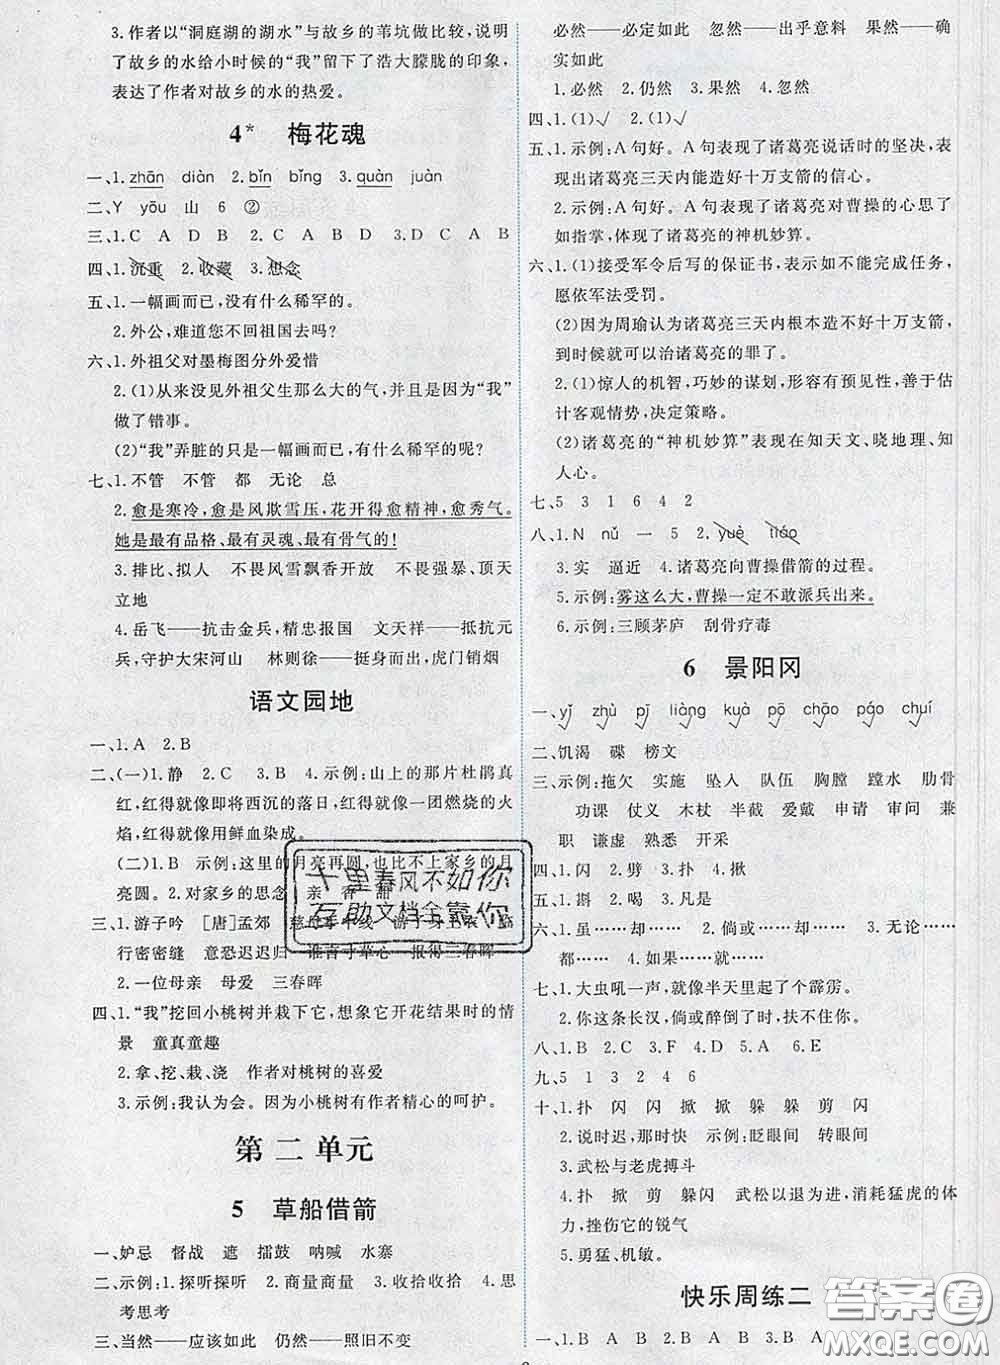 3.作者以“洞庭湖的湖水”与故乡的苇坑做比较,说明
了故乡的水给小时候的“我”留下了浩大朦胧的印象,
表达了作者对故乡的水的热爱。
4* 梅花魂
一、1.zhān diàn 2.bǐn bǐng 3.quàn juàn
二、Y yōu 山 6 ②
三、1.C A D B 2.C A B D 3.D C A B
四、1.沉重 2.收藏 3.想念
五、1.一幅画而已,没有什么稀罕的。
2.外公,难道您不回祖国去吗?
六、1.外祖父对墨梅图分外爱惜
2.(1)从来没见外祖父生那么大的气,并且是因为“我”
做了错事。
(2)“我”弄脏的只是一幅画而已,有什么稀罕的呢?
七、1.不管 不管 都 无论 总
2.愈是寒冷,愈是风欺雪压,花开得愈精神,愈秀气。
她是最有品格、最有灵魂、最有骨气的!
3.排比、拟人 不畏风雪飘香开放 不畏强暴、顶天
立地
4.岳飞——抗击金兵,精忠报国 文天祥——抵抗元
兵,守护大宋河山 林则徐——挺身而出,虎门销烟
语文园地
一、1.A 2.B
二、(一)1.静 2.C 3.B 4.示例:山上的那片杜鹃真
红,红得就像即将西沉的落日,红得就像一团燃烧的火
焰,红得就像用鲜血染成。
(二)1.B 示例:这里的月亮再圆,也比不上家乡的月
亮圆。 2.对家乡的思念 亲 香 甜
三、1.游子吟 [唐]孟郊 慈母手中线 游子身上衣 临
行密密缝 意恐迟迟归 谁言寸草心 报得三春晖
2.一位母亲 母爱 三春晖
四、1.“我”挖回小桃树并栽下它,想象它开花结果时的情
景 童真童趣
2.拿、挖、栽、浇 作者对桃树的喜爱
3.示例:我认为会。因为小桃树有作者精心的呵护。
第二单元
5 草船借箭
一、妒忌 督战 遮 擂鼓 呐喊 水寨
二、示例:1.探听探听 2.商量商量 3.收拾收拾 4.思
考思考
三、当然——应该如此 仍然——照旧不变
必然——必定如此 忽然——出乎意料 果然——确
实如此
1.必然 2.仍然 3.果然 4.忽然
四、1.(1)√ 2.(1)√
五、1.示例:A句好。A句表现了诸葛亮说话时的坚决,表
现出诸葛亮三天内能造好十万支箭的信心。
2.示例:A句好。A句表现了诸葛亮对曹操的心思了
如指掌,体现了诸葛亮的神机妙算。
六、1.(1)接受军令后写的保证书,表示如不能完成任务,
愿依军法受罚。
(2)因为周瑜认为诸葛亮三天内根本造不好十万支箭,
到时候就可以治诸葛亮的罪了。
2.(1)惊人的机智,巧妙的谋划,形容有预见性,善于估
计客观情势,决定策略。
(2)诸葛亮的“神机妙算”表现在知天文、晓地理、知
人心。
七、5 3 1 6 4 2
八、1.N nǔ 一 5 2.yuè tiáo
3.实 逼近 4.诸葛亮向曹操借箭的过程。
5.示例:雾这么大,曹操一定不敢派兵出来。
6.示例:三顾茅庐 刮骨疗毒
6 景阳冈
一、yǐ zhù pī liàng kuà pō chāo páo chuí
二、饥渴 碟 榜文
三、示例:拖欠 实施 坠入 队伍 胸膛 蹚水 肋骨
功课 仗义 木杖 半截 爱戴 申请 审问 兼
职 谦虚 熟悉 开采
四、1.闪 2.劈 3.扑 4.揪
五、1.斟 2.喝 3.凡 4.满
六、1.虽……却…… 2.倘或……却…… 3.无论……
都…… 4.如果……就……
七、1.大虫吼一声,就像半天里起了个霹雳。
2.你这条长汉,倘或醉倒了时,扶不住你。
八、1.B 2.C 3.F 4.D 5.A 6.E
九、5 1 3 2 4 6
十、1.扑 闪 闪 掀 掀 躲 躲 剪 闪
2.说时迟,那时快 示例:眨眼间 转眼间
3.武松与老虎搏斗
4.扑 掀 剪 躲闪 武松以退为进,消耗猛虎的体
力,挫伤它的锐气
5.勇猛、机敏。
快乐周练二
一、1.B A B 2.A A B 3.B A
十里春风不如你
互助文档全靠你
答案圈
MXQE.COM